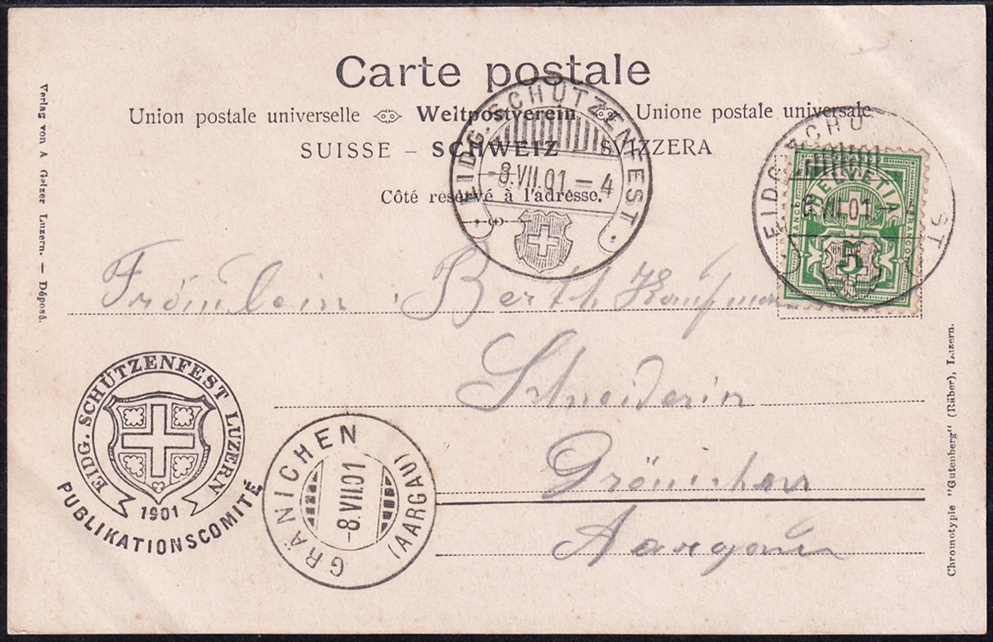 Carte postale
Union postale universelle Weltpostverein Unione postale universale
SUISSE – SCHWEIZ SVIZZERA
Côté reservé à l'adresse.
EIDG. SCHÜTZENFEST
-8.VII.01 – 4
EIDG. SCHÜ ST
VII.01
HELVETIA
5
Verlag von A Gelzer Luzern. — Déposé.
Fräulein Berth Kaufmann
Schneiderin
Gränichen
Aargau
EIDG. SCHÜTZENFEST LUZERN
1901
PUBLIKATIONSCOMITÉ
GRÄNICHEN
-8.VII.01
(AARGAU)
Chromotypie "Gutenberg" (Räber), Luzern.